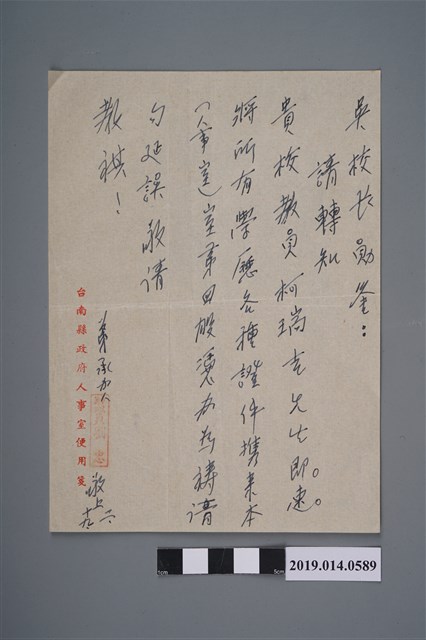 吳校長勛鑒：
請轉知
貴校教員柯瑞吉先生即。速。
將所有學歷各種證件携来本
(人事室)室弟日般憑为為禱請
勿延誤敬请
教祺！
弟承办人
敬上
台南縣政府人事室便用箋
1cm
5cm
2019.014.0589